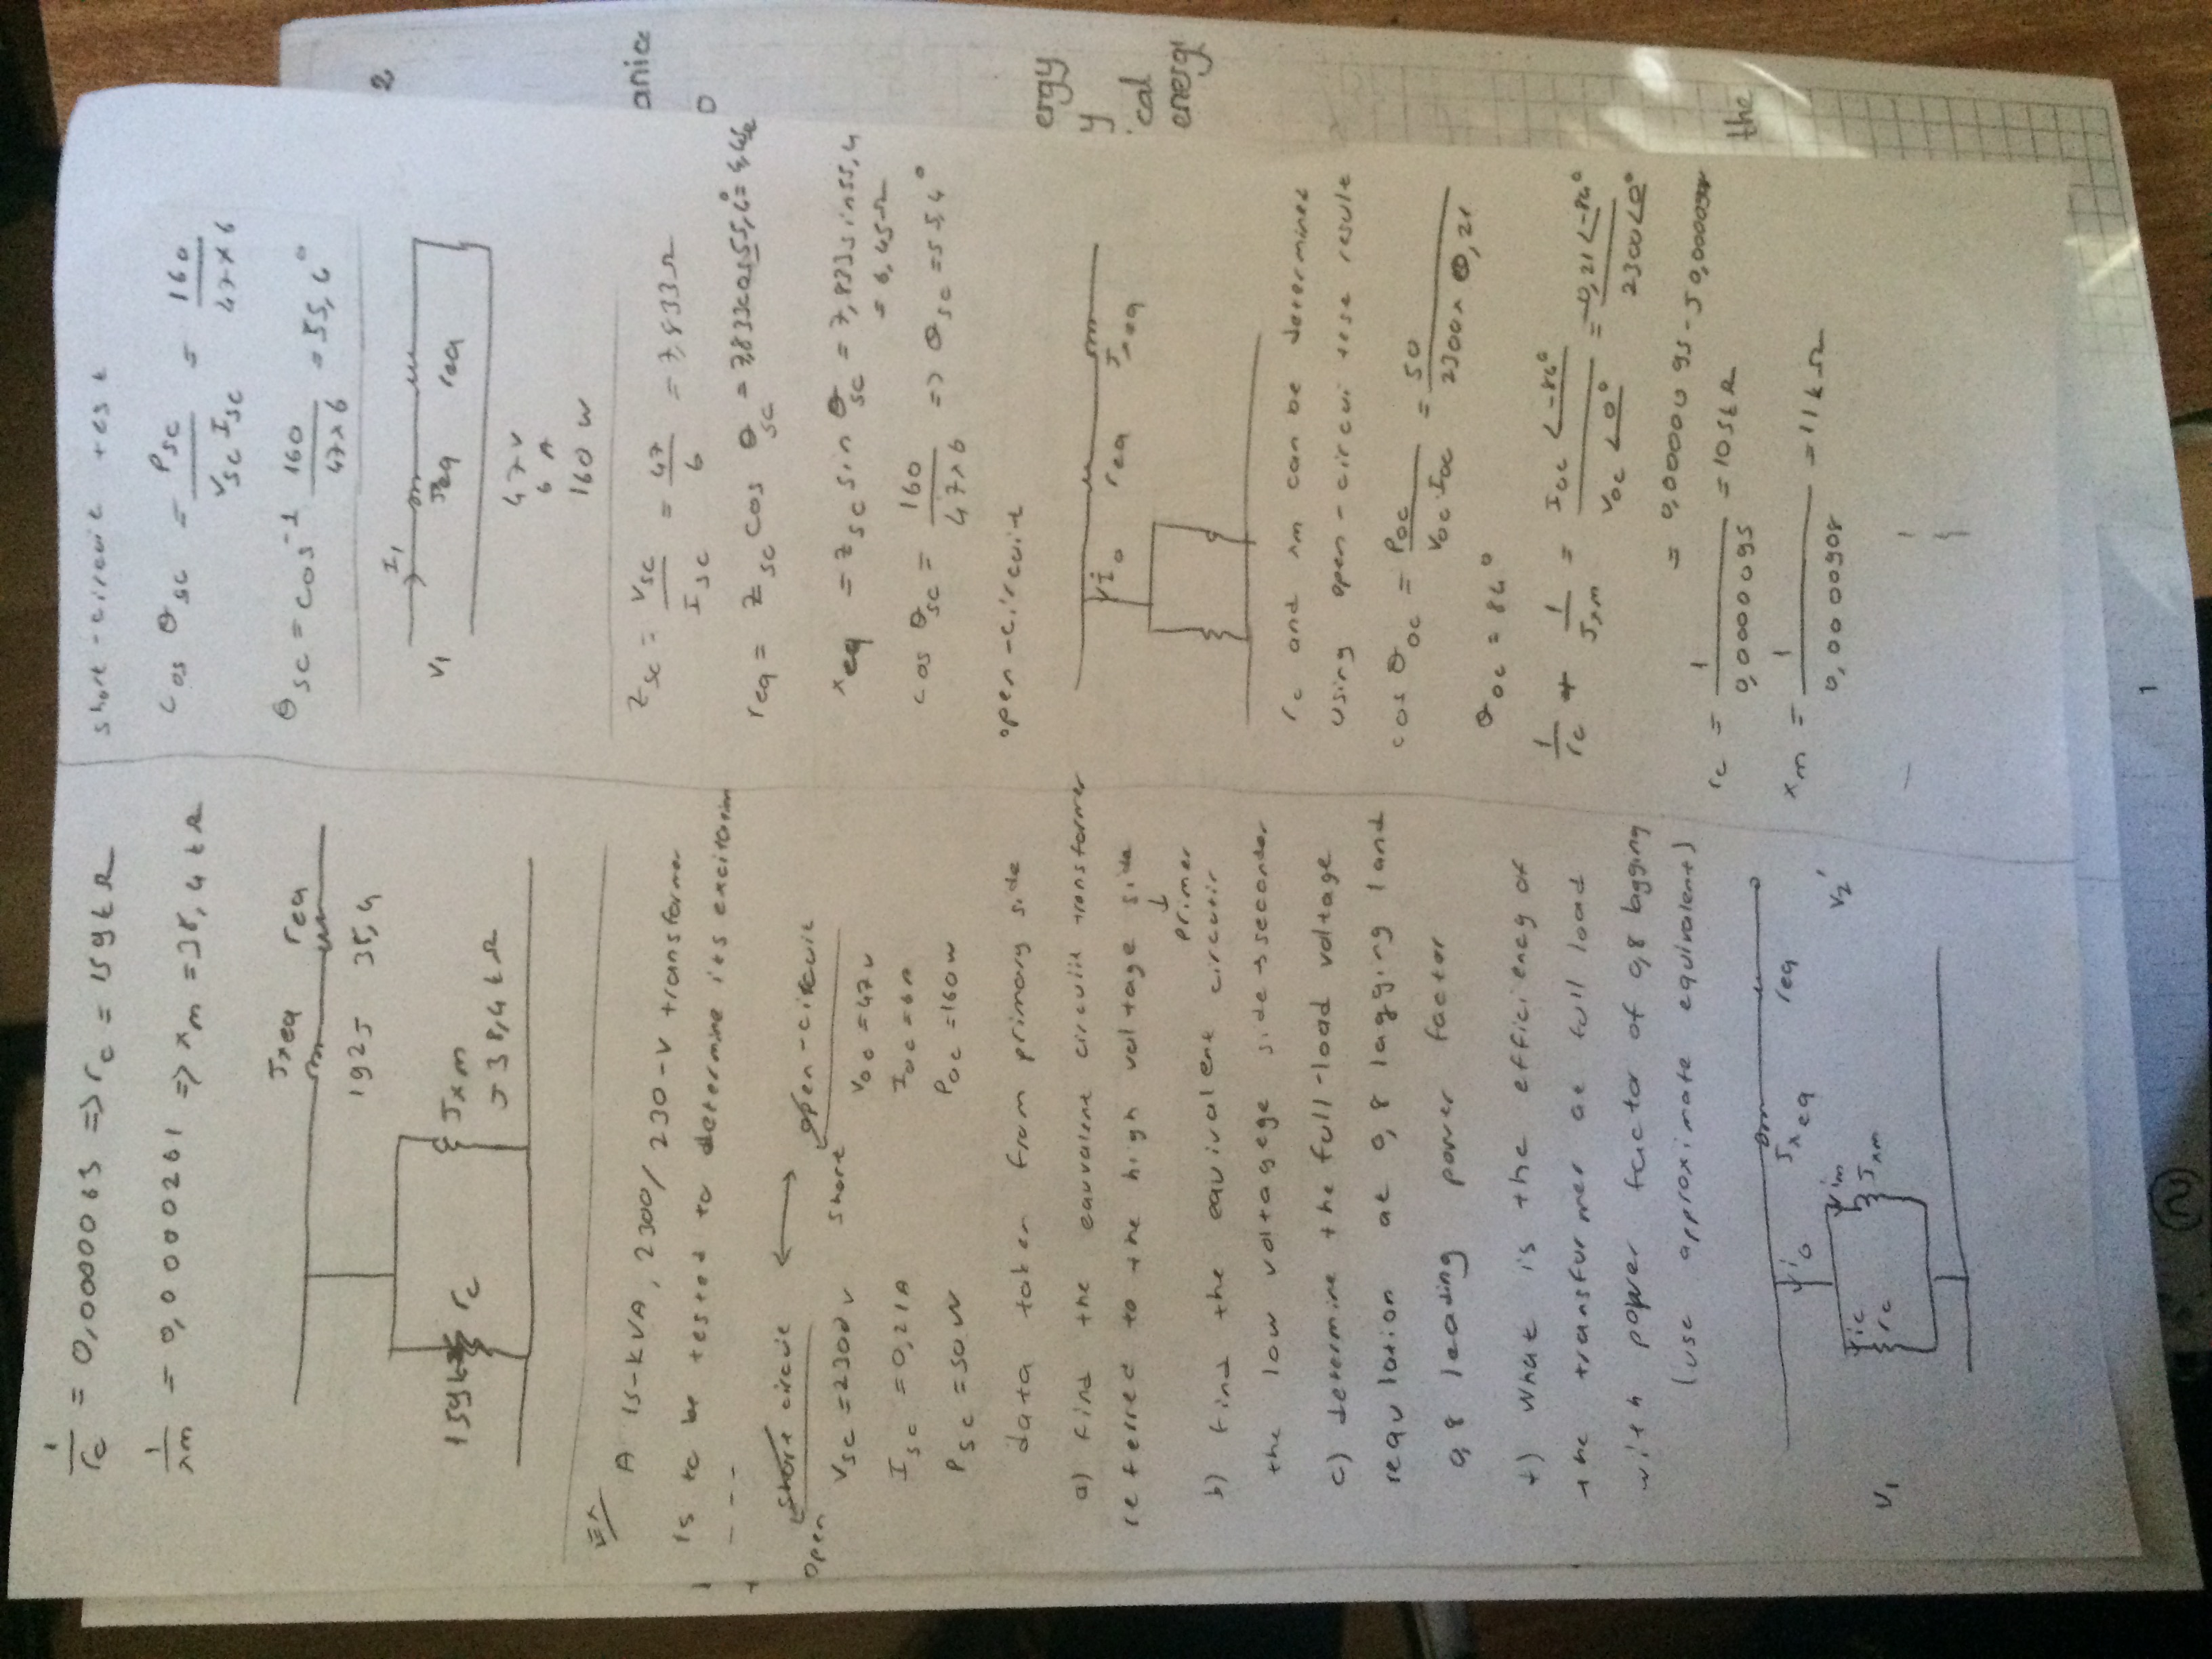 1/rc = 0,0000063 => rc = 159kΩ
1/xm = 0,0000261 => xm = 38,4kΩ
Jxeq req
192J 38,4
159k rc Jxm
J38,4kΩ
Ex A 15-kVA, 2300/230-V transformer
is to be tested to determine its excitation
- - -
open short circuit <-> short open-circuit
Vsc = 2300v Voc = 47v
Isc = 0,21A Ioc = 6A
Psc = 50W Poc = 160W
data taken from primary side
a) find the equvalent circuit transformer
referred to the high voltage side
primer
b) find the equivalent circuir
the low voltagege side → seconder
c) determine the full-load voltage
regulation at 0,8 lagging and
0,8 leading power factor
t) what is the efficieny of
the transfurmer at full load
with power factor of 0,8 lagging
(use approximate equivalent)
io Jxeq req
V1 ic im V2'
rc Jxm
short-circuit test
cos θsc = Psc/VscIsc = 160/47x6
θsc = cos⁻¹ 160/47x6 = 55,6°
I1
V1 Jxeq req
47v
6 A
160 W
Zsc = Vsc/Isc = 47/6 = 7,833Ω
req = Zsc cos θsc = 7,833cos55,6° = 4,45Ω
xeq = Zsc sin θsc = 7,833sin55,4
= 6,45Ω
cos θsc = 160/47x6 => θsc = 55,4°
open-circuit
io req Jxeq
rc and xm can be determined
using open-circui test result
cos θoc = Poc/VocIoc = 50/2300x0,21
θoc = 84°
1/rc + 1/Jxm = Ioc∠-84°/Voc∠0° = 0,21∠-84°/2300∠0°
= 0,0000095-J0,0000908
rc = 1/0,0000095 = 105kΩ
xm = 1/0,0000908 = 11kΩ
2
1
2
anica
0
ergy
y
ical
energi
the